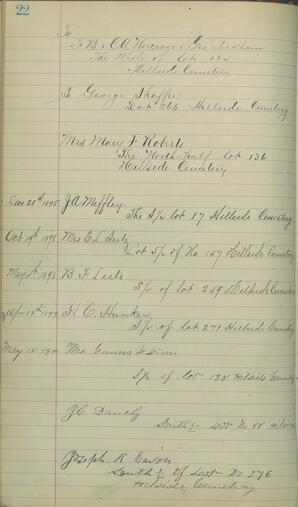 22
To
F B & O A Newcross & Geo Bedham
The Whole of lot 132
Hillside Cemetery
To George Shaffer
Lot 268 Hillside Cemetery
Mrs Mary F Roberts
The North half lot 136
Hillside Cemetery
Nov 28th 1895 J A Meffley
The S/2 lot 87 Hillside Cemetery
Oct 19th 1898 Mrs E L
Lot S/2 of No 157 Hillside Cemetery
May 1898 B F Leets
S/2 of lot 259 Hillside Cemetery
Apr 10th H C Hunken
S/2 of lot 270 Hillside Cemetery
May 15 Mrs Emma
S/2 of lot 138 Hillside Cemetery
J C Danely
South ½ Lott No 88 Hillside
Joseph R Eason
South ½ Of Lott No 276
Hillside Cemetery